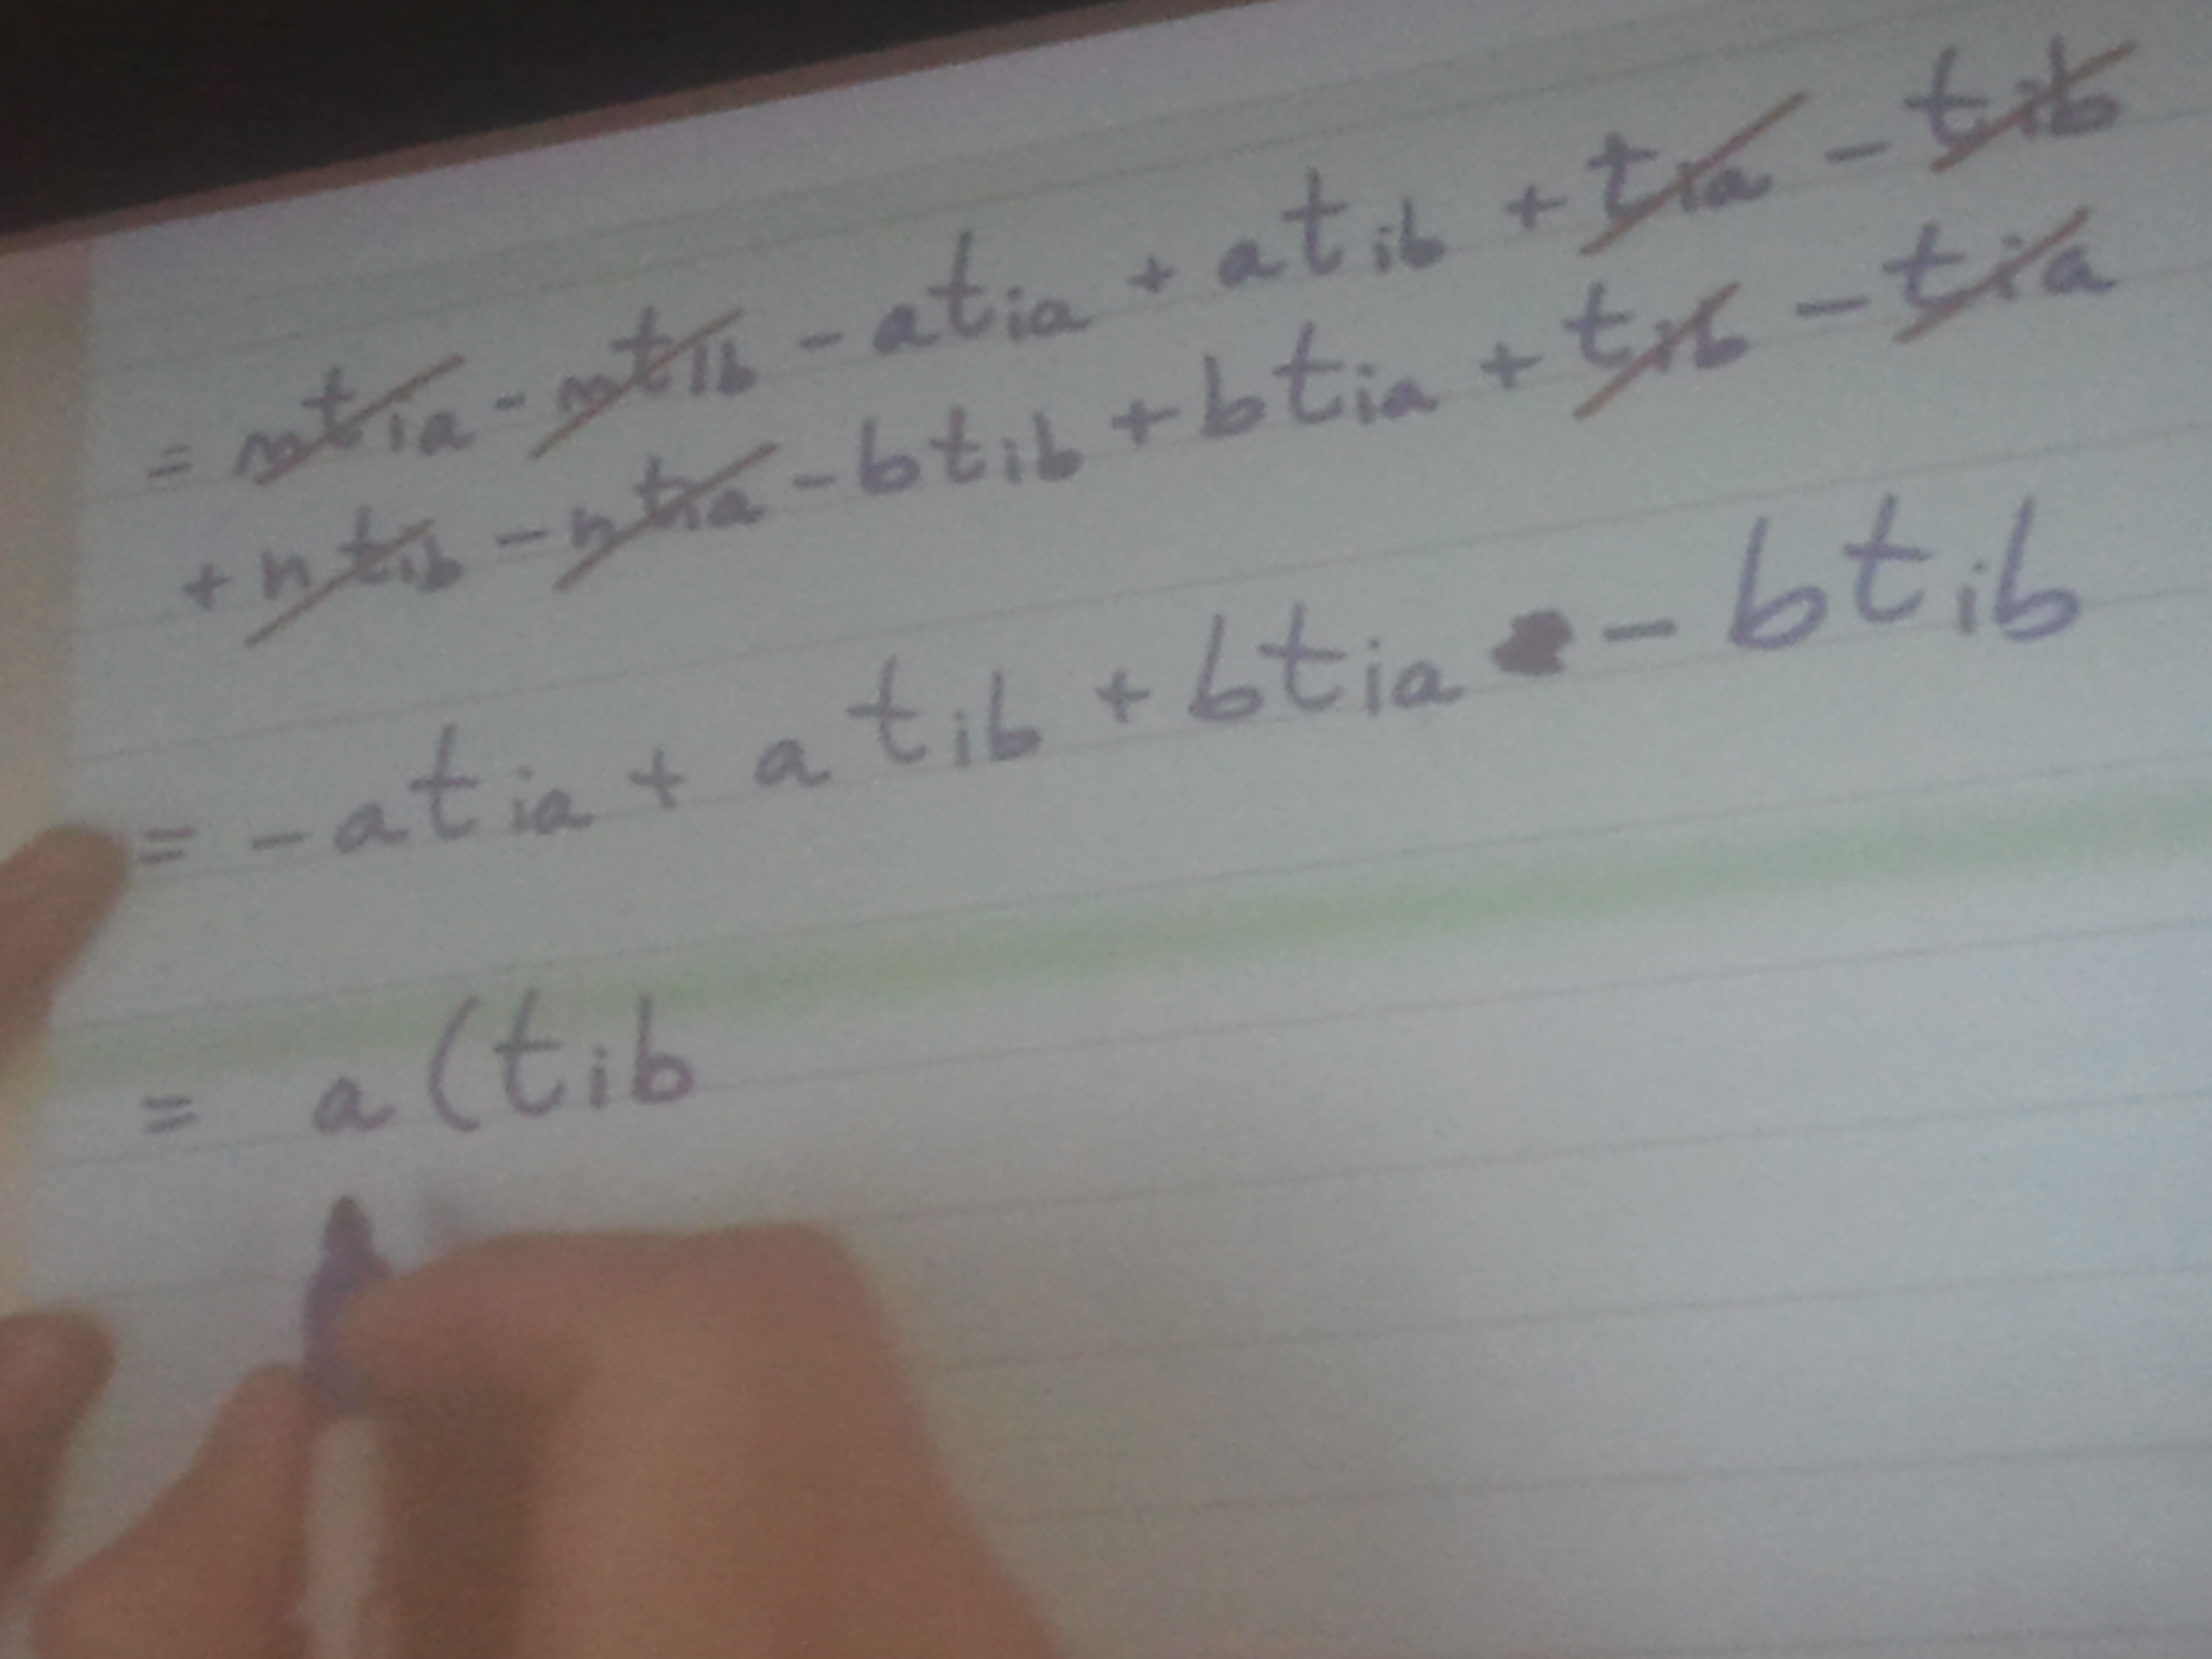 = mtia - mtib - atia + atib + tia - tib
+ ntib - ntia - btib + btia + tib - tia
= - atia + atib + btia - btib
= a(tib